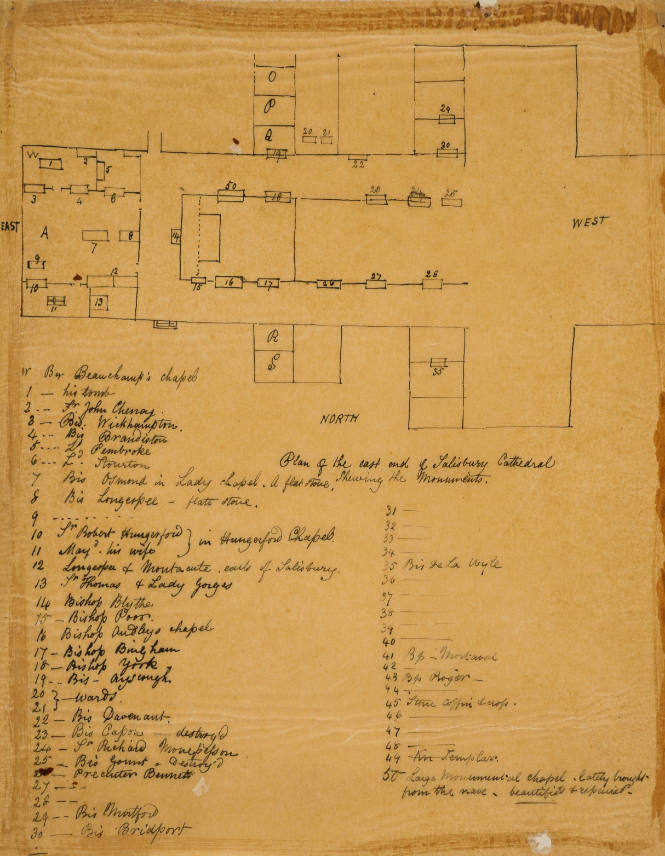 O
P
Q
20 21
29
19
22
30
W
1
2
5
3
4
6
50
18
28
24
25
EAST
A
7
8
14
WEST
9
10
12
11
13
15
16
17
26
27
26
R
S
35
NORTH
W Bp Beauchamp's chapel
1 — his tomb
2 -- Sr John Cheney
3 — Bis. Wickhampton.
4 -- Bis Brandiston
5 --- Ld Pembroke
6 --- Ld Stourton
Plan of the east end of Salisbury Cathedral
Shewing the Monuments.
7 Bis Osmond in Lady chapel. A flat stone.
8 Bis Longespee - flat stone.
9 --------
10 Sr Robert Hungerford } in Hungerford Chapel.
11 Mayd. his wife
12 Longespee & Montacute. earls of Salisbury.
13 Sr Thomas & Lady Gorges
14 Bishop Blythe
15 - Bishop Poor.
16 Bishop Audleys chapel
17 - Bishop Bingham
18 - Bishop York
19 -- Bis - Ayscough.
20 } — wards.
21
22 — Bis Davenant.
23 — Bis Capon destroy'd
24 - Sr Richard Mompesson
25 - Bis Gount - Destroy'd
26 — Precenter Bennett
27 - s -
28 —
29 -- Bis Mortford
30 — Bis Bridport
31 —
32 —
33 —
34
35 Bis de La Wyle
36 —
37 —
38 —
39 —
40 —
41 Bp -
42 —
43 Bp Roger —
44 -
45 Stone coffin
46 —
47 —
48 —
49 - Knt Templar.
50 Large Monumental chapel. lately brought
from the nave - beautified & repaired -